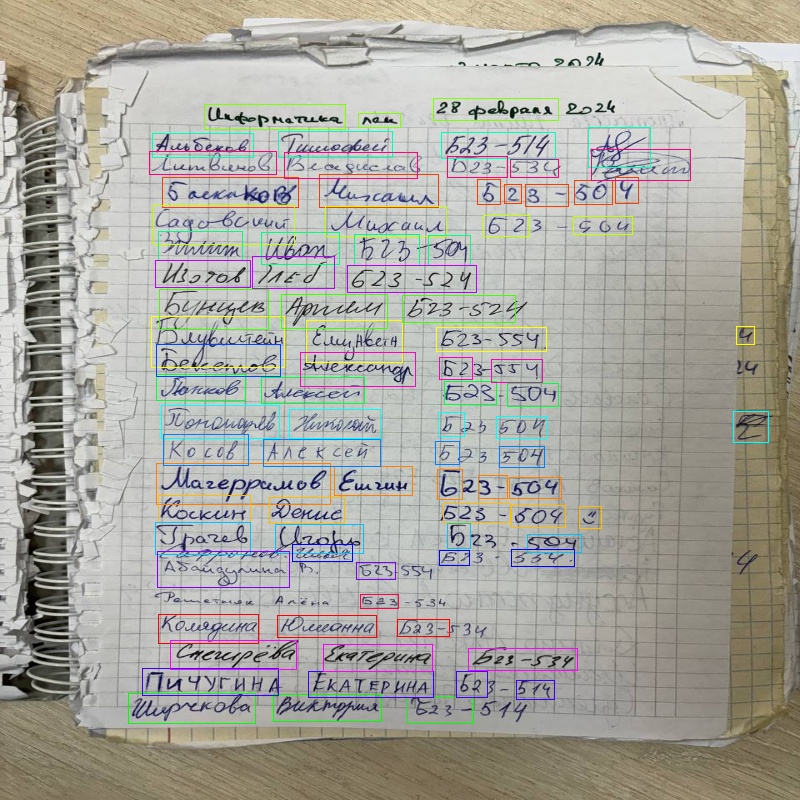 2024
Информатика лек 28 февраля 2024
Альбеков Тимофей Б23-514
Литвинов Владислав Б23-534
Баскаков Михаил Б23-504
Садовский Михаил Б23-504
Иван Б23-504
Изотов Глеб Б23-524
Бунцев Артем Б23-524
Блувштейн Елизавета Б23-554
Бекетов Александр Б23-554
Панков Алексей Б23-504
Пономарев Николай Б23 504
Косов Алексей Б23 504
Магеррамов Ешгин Б23-504
Коскин Денис Б23-504
Грачев Игорь Б23-504
Сафронов Илья Б23-534
Абайдулина В. Б23-554
Решетняк Алёна Б23-534
Комядина Юлианна Б23-534
Снегирёва Екатерина Б23-534
ПИЧУГИНА ЕКАТЕРИНА Б23-514
Ширчкова Виктория Б23-514